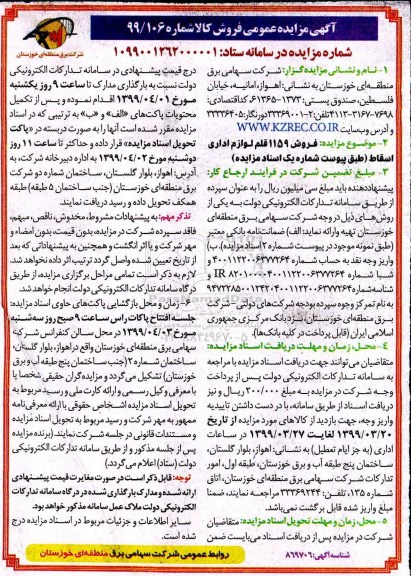 آگهی مزایده عمومی فروش کالا شماره ۹۹/۱۰۶
شرکت برق منطقه‌ای خوزستان
شماره مزایده در سامانه ستاد: ۱۰۹۹۰۰۱۲۶۲۰۰۰۰۰۱
۱- نام و نشانی مزایده گزار: شرکت سهامی برق
منطقه‌ای خوزستان به نشانی: اهواز، امانیه، خیابان
فلسطین، صندوق پستی: ۱۳۷۳-۶۱۳۶۵، کد اقتصادی:
و آدرس وب‌سایت WWW.KZREC.CO.IR
۲- موضوع مزایده: فروش ۱۱۵۹ قلم لوازم اداری
اسقاط (طبق پیوست شماره یک اسناد مزایده)
۳- مبلغ تضمین شرکت در فرآیند ارجاع کار:
پیشنهاددهنده باید مبلغ سی میلیون ریال را به عنوان سپرده
از طریق سامانه تدارکات الکترونیکی دولت به یکی از
روش‌های ذیل در وجه شرکت سهامی برق منطقه‌ای
خوزستان تهیه و ارائه نماید: الف) ضمانتنامه بانکی معتبر
(طبق نمونه موجود در پیوست شماره ۲ اسناد مزایده). ب)
واریز وجه نقد به حساب شماره ۴۰۰۱۱۲۲۰۰۶۳۷۷۲۶۴ و
به نام تمرکز وجوه سپرده بودجه شرکت‌های دولتی - شرکت
برق منطقه‌ای خوزستان، نزد بانک مرکزی جمهوری
اسلامی ایران (قابل پرداخت در کلیه بانک‌ها).
۴- محل، زمان و مهلت دریافت اسناد مزایده:
متقاضیان می‌توانند جهت دریافت اسناد مزایده با مراجعه
به سامانه تدارکات الکترونیکی دولت پس از پرداخت
وجه شرکت در مزایده به مبلغ ۲۰۰/۰۰۰ ریال و نیز
دریافت اسناد از طریق سامانه، با در دست داشتن تاییدیه
واریز وجه، جهت بازدید از کالاهای مورد مزایده از تاریخ
۱۳۹۹/۰۳/۲۰ لغایت ۱۳۹۹/۰۳/۲۷ در ساعات
اداری (به جز ایام تعطیل) به نشانی: اهواز، بلوار گلستان،
ساختمان پنج طبقه آب و برق خوزستان، طبقه اول، امور
تدارکات شرکت سهامی برق منطقه‌ای خوزستان، اتاق
شماره ۱۳۵، تلفن: ۳۳۳۶۹۲۴۴ مراجعه نمایند، ضمنا
مبلغ واریز شده قابل برگشت نمی‌باشد.
۵- محل، زمان و مهلت تحویل اسناد مزایده: متقاضیان
شرکت در مزایده پس از دریافت اسناد می‌بایست ضمن
درج قیمت پیشنهادی در سامانه تدارکات الکترونیکی
دولت نسبت به بارگذاری مدارک تا ساعت ۹ روز یکشنبه
مورخ ۱۳۹۹/۰۴/۰۱ اقدام نموده و پس از تکمیل
محتویات پاکت‌های «الف» و «ب» به ترتیبی که در اسناد
مزایده مقرر شده است آنها را به صورت دربسته در «پاکت
تحویل اسناد مزایده» قرار داده و حداکثر تا ساعت ۱۱ روز
دوشنبه مورخ ۱۳۹۹/۰۴/۰۲ به اداره دبیرخانه شرکت، به
آدرس: اهواز، بلوار گلستان، ساختمان شماره دو شرکت
برق منطقه‌ای خوزستان (جنب ساختمان ۵ طبقه) طبقه
همکف تحویل داده و رسید دریافت نمایند.
تذکر مهم: به پیشنهادات مشروط، مخدوش، ناقص، مبهم،
فاقد سپرده شرکت در مزایده، بدون قیمت، بدون امضاء و
مهر شرکت و یا اثر انگشت و همچنین به پیشنهاداتی که بعد
از تاریخ تعیین شده واصل گردد ترتیب اثر داده نخواهد شد.
لازم به ذکر است تمامی مراحل برگزاری مزایده، از طریق
درگاه سامانه تدارکات الکترونیکی دولت انجام خواهد شد.
۶- زمان و محل بازگشایی پاکت‌های حاوی اسناد مزایده:
جلسه افتتاح پاکات راس ساعت ۹ صبح روز سه‌شنبه
مورخ ۱۳۹۹/۰۴/۰۳ در محل سالن کنفرانس شرکت
سهامی برق منطقه‌ای خوزستان واقع در اهواز، بلوار گلستان،
ساختمان شماره ۲ (جنب ساختمان پنج طبقه آب و برق
خوزستان) تشکیل می‌گردد و مزایده‌گران حقیقی شخصا یا
با معرفی وکیل رسمی و ارائه کارت ملی و رسید مربوط به
تحویل اسناد مزایده و اشخاص حقوقی با ارائه معرفی‌نامه
ممهور به مهر شرکت و رسید مربوط به تحویل اسناد مزایده
و مستندات قانونی در جلسه شرکت نمایند. (برنده مزایده
پس از جلسه مذکور و از طریق سامانه تدارکات الکترونیکی
دولت (ستاد) اعلام می‌گردد).
توجه: قابل ذکر است در صورت مغایرت قیمت پیشنهادی
ارائه شده و مدارک بارگذاری شده در درگاه سامانه تدارکات
الکترونیکی دولت ملاک عمل سامانه مذکور خواهد بود.
سایر اطلاعات و جزئیات مربوط در اسناد مزایده درج
شده است.
شناسه آگهی: ۸۶۹۷۰۶
روابط عمومی شرکت سهامی برق منطقه‌ای خوزستان